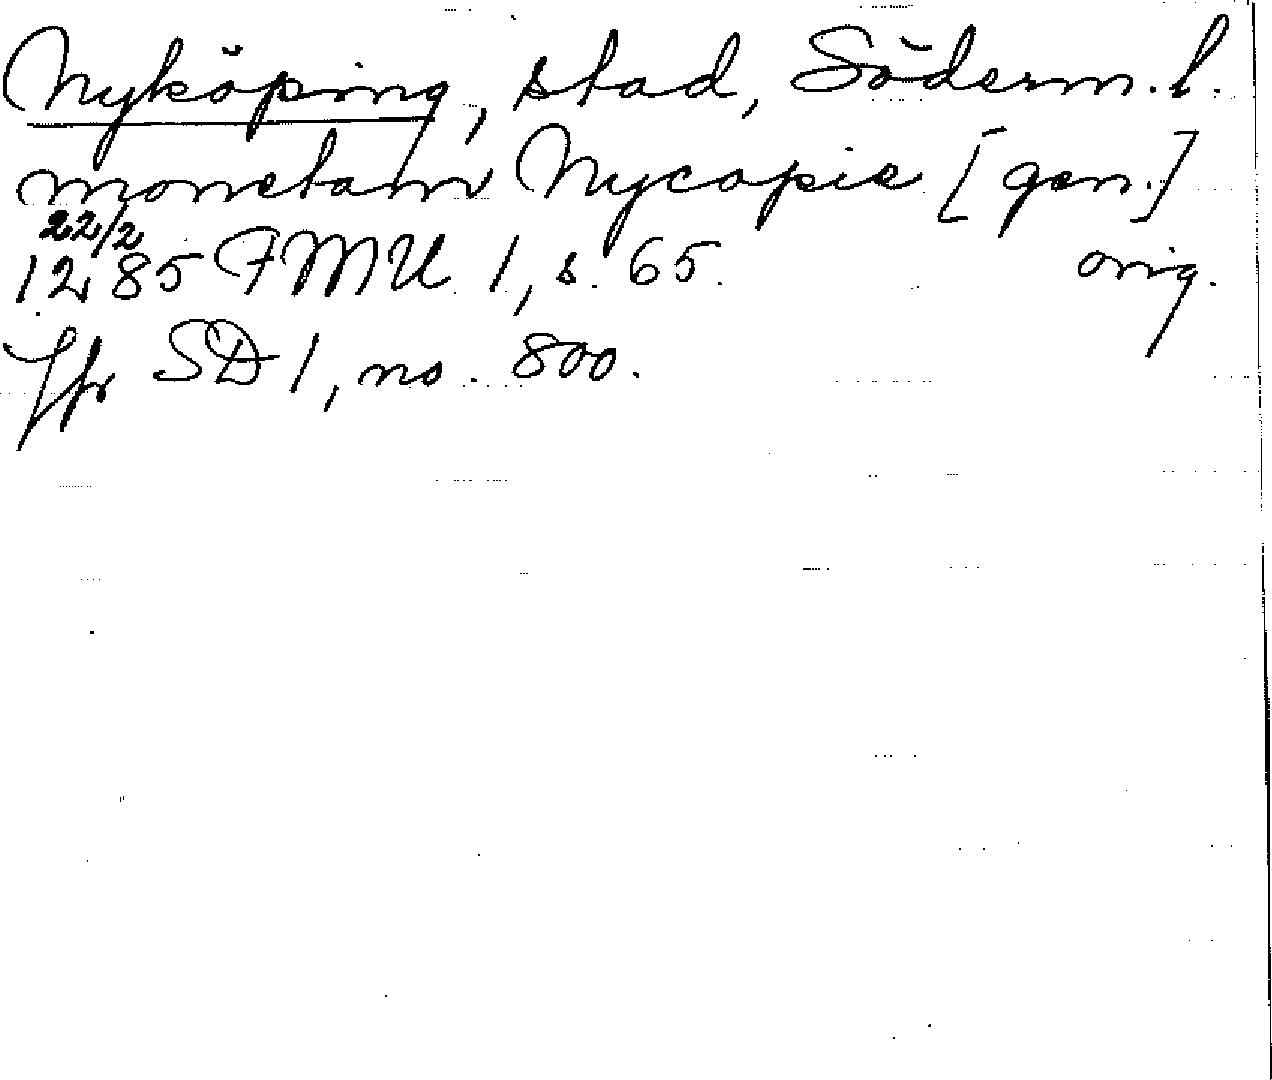 Nyköping, stad, Söderm. l.
monetam Nycopie [gen.]
22/2
1285 FMU 1, s. 65. orig.
Jfr SD 1, no. 800.